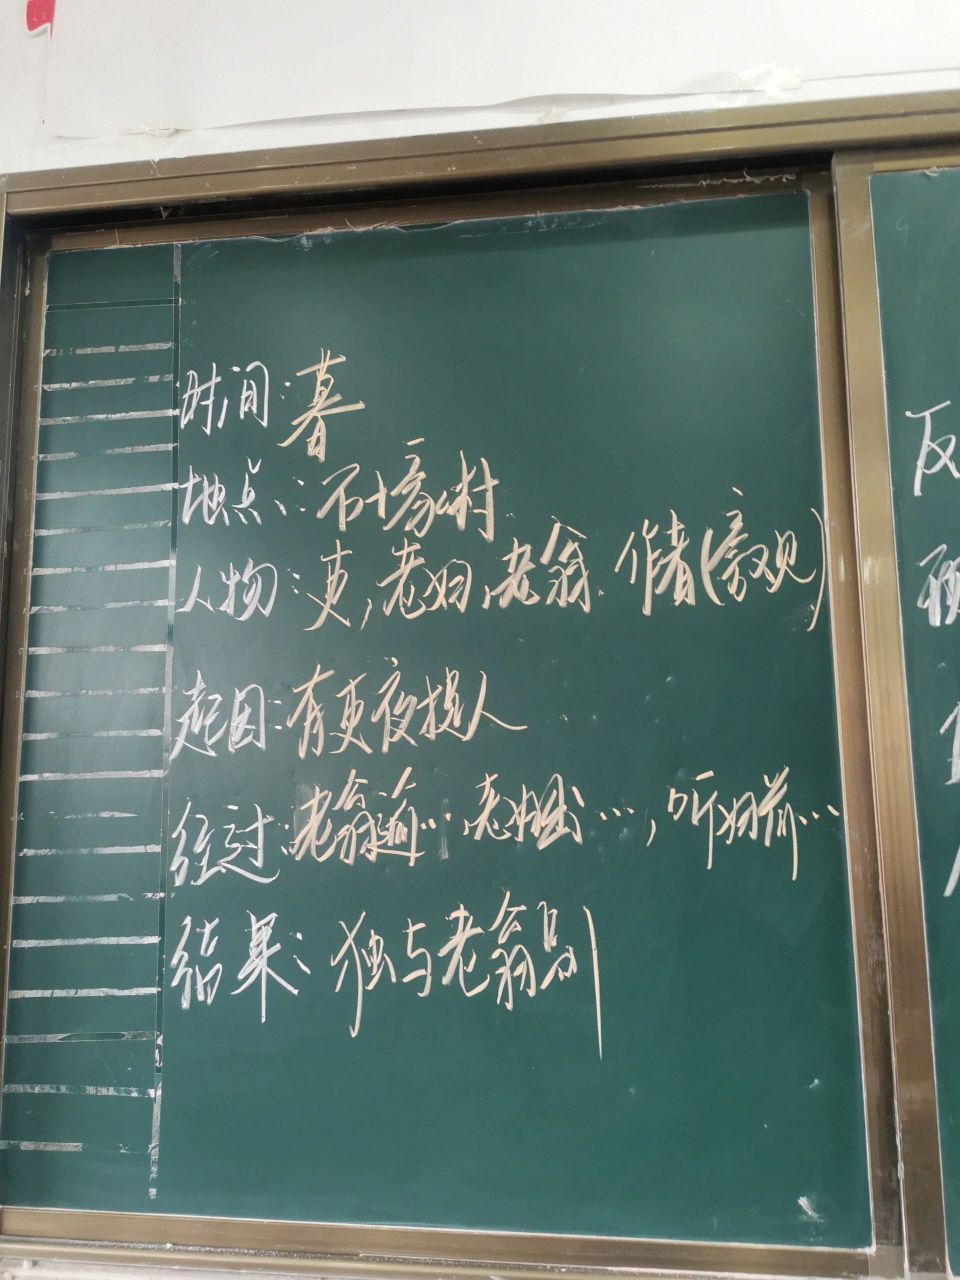 时间:暮
地点:石壕村
人物:吏,老妇,老翁.作者(旁观)
起因:有吏夜捉人
经过:老翁逾…老妇出…,听妇前…
结果:独与老翁别
反